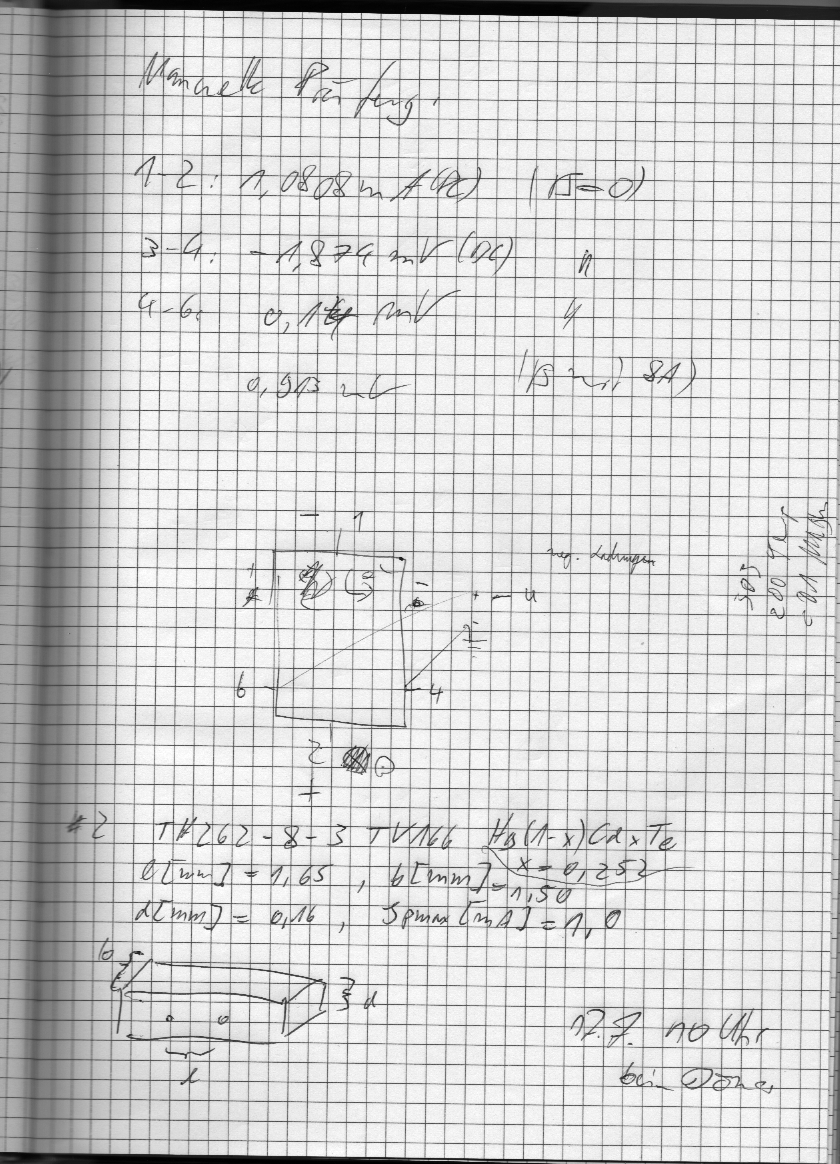 Manuelle Prüfung:
1-2: 1,0808 mA (DC) (B=0)
3-4: -1,874 mV (DC) "
4-6: 0,14 mV "
0,913 mV (B mit 8A)
- 1
neg. Ladungen
- 4
6
4
2
+
#2 TH262-8-3 TV166 Hg(1-x)CdxTe
x=0,252
l[mm] = 1,65 , b[mm] = 1,50
d[mm] = 0,16 , Ipmax[mA] = 1,0
b
d
l
17.7. 10 Uhr